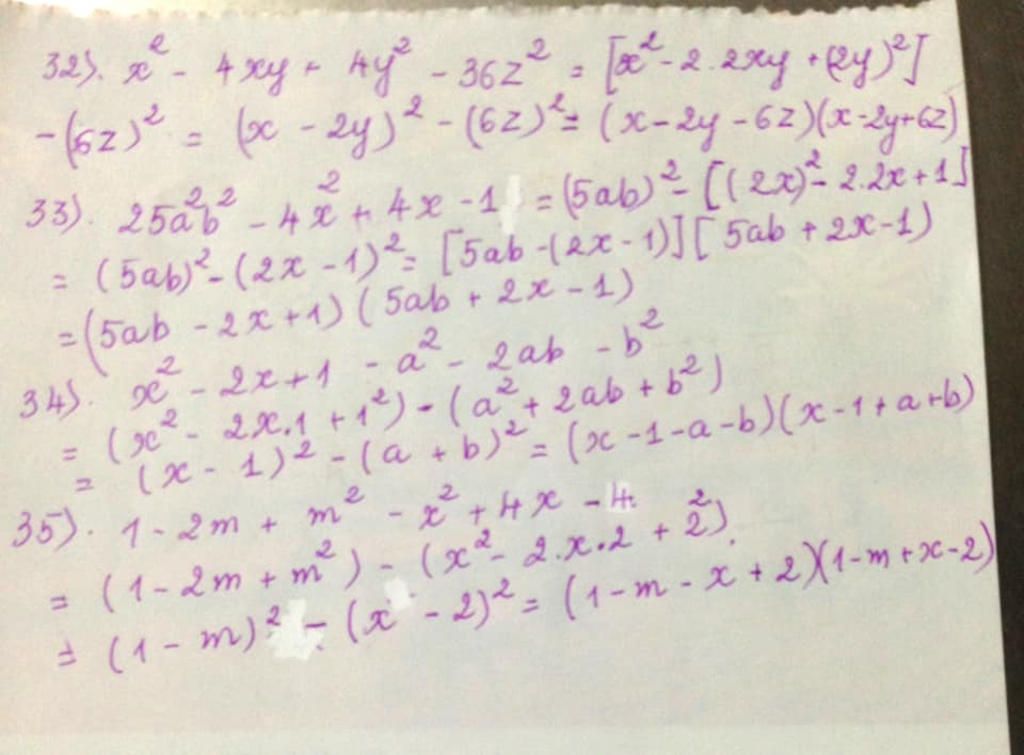 32). x² - 4xy + 4y² - 36z² = [x² - 2.2xy + (2y)²]
-(6z)² = (x - 2y)² - (6z)² = (x - 2y - 6z)(x - 2y + 6z)
33). 25a²b² - 4x² + 4x - 1 = (5ab)² - [(2x)² - 2.2x + 1]
= (5ab)² - (2x - 1)² = [5ab - (2x - 1)][5ab + 2x - 1)
= (5ab - 2x + 1)(5ab + 2x - 1)
34). x² - 2x + 1 - a² - 2ab - b²
= (x² - 2x.1 + 1²) - (a² + 2ab + b²)
= (x - 1)² - (a + b)² = (x - 1 - a - b)(x - 1 + a + b)
35). 1 - 2m + m² - x² + 4x - 4.
= (1 - 2m + m²) - (x² - 2.x.2 + 2²).
= (1 - m)² - (x - 2)² = (1 - m - x + 2)(1 - m + x - 2)